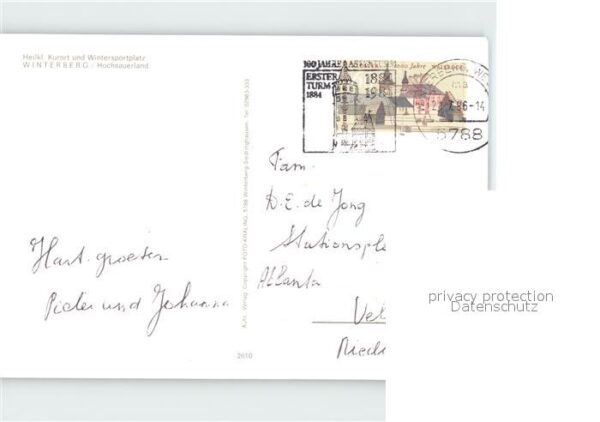 Heilkl. Kurort und Wintersportplatz
WINTERBERG / Hochsauerland
100 JAHRE
ERSTER
TURM
1884
1884
1000 Jahre WALSRODE
86-14
5788
Fam.
D.E. de Jong
Stationsple
Atlanta
Hart. groeten
Pieter und Johanna
Auth. Verlag Copyright FOTO-KRALING, 5788 Winterberg-Siedlinghausen, Tel.
2610
privacy protection
Datenschutz